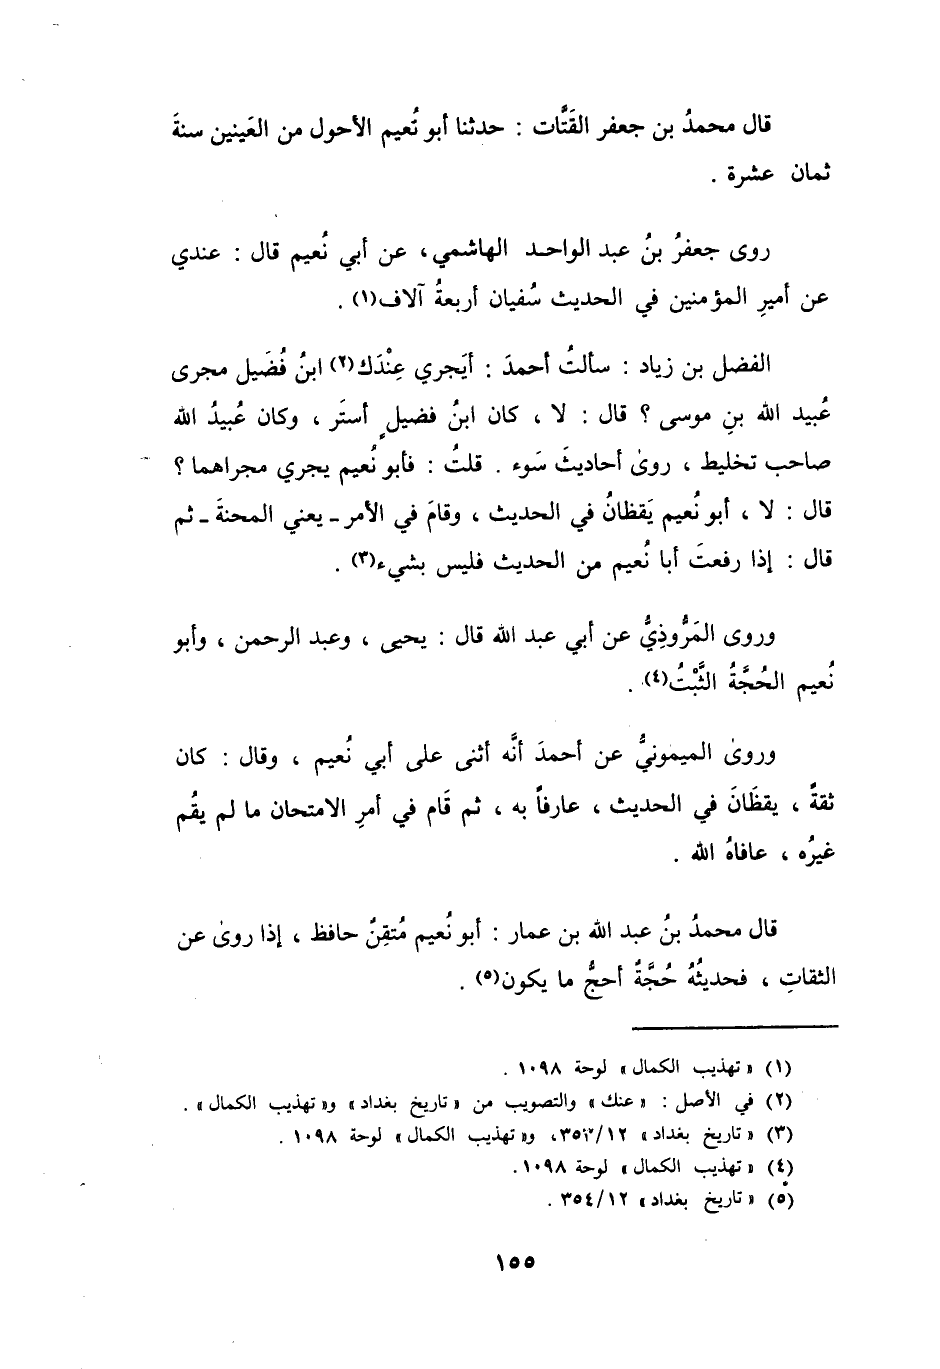 قال محمدُ بن جعفر القَتَّات : حدثنا أبو نُعيم الأحول من العَينين سنةَ
ثمان عشرة .
روى جعفرُ بنُ عبد الواحد الهاشمي، عن أبي نُعيم قال : عندي
عن أميرِ المؤمنين في الحديث سُفيان أربعةُ آلاف(١) .
الفضل بن زياد : سألتُ أحمدَ : أيَجري عِنْدَك(٢) ابنُ فُضَيل مجرى
عُبيد الله بنِ موسى ؟ قال : لا ، كان ابنُ فضيلٍ أستَر ، وكان عُبيدُ الله
صاحب تخليط ، روىٰ أحاديثَ سَوء . قلتُ : فأبو نُعيم يجري مجراهما ؟
قال : لا ، أبو نُعيم يَقظانُ في الحديث ، وقامَ في الأمر ـ يعني المحنةَ ـ ثم
قال : إذا رفعتَ أبا نُعيم من الحديث فليس بشيء(٣) .
وروى المَرُّوذِيُّ عن أبي عبد الله قال : يحيى ، وعبد الرحمن ، وأبو
نُعيم الحُجَّةُ الثَّبْتُ(٤) .
وروىٰ الميمونيُّ عن أحمدَ أنَّه أثنى على أبي نُعيم ، وقال : كان
ثقةً ، يقظَانَ في الحديث ، عارفاً به ، ثم قَام في أمرِ الامتحان ما لم يقُم
غيرُه ، عافاهُ الله .
قال محمدُ بنُ عبد الله بن عمار : أبو نُعيم مُتقِنٌ حافظ ، إذا روىٰ عن
الثقاتِ ، فحديثُهُ حُجَّةٌ أحجُّ ما يكون(٥) .
(١) « تهذيب الكمال » لوحة ١٠٩٨ .
(٢) في الأصل : « عنك » والتصويب من « تاريخ بغداد » و« تهذيب الكمال » .
(٣) « تاريخ بغداد » ٣٥٣/١٢، و« تهذيب الكمال » لوحة ١٠٩٨ .
(٤) « تهذيب الكمال » لوحة ١٠٩٨ .
(٥) « تاريخ بغداد » ٣٥٤/١٢ .
١٥٥